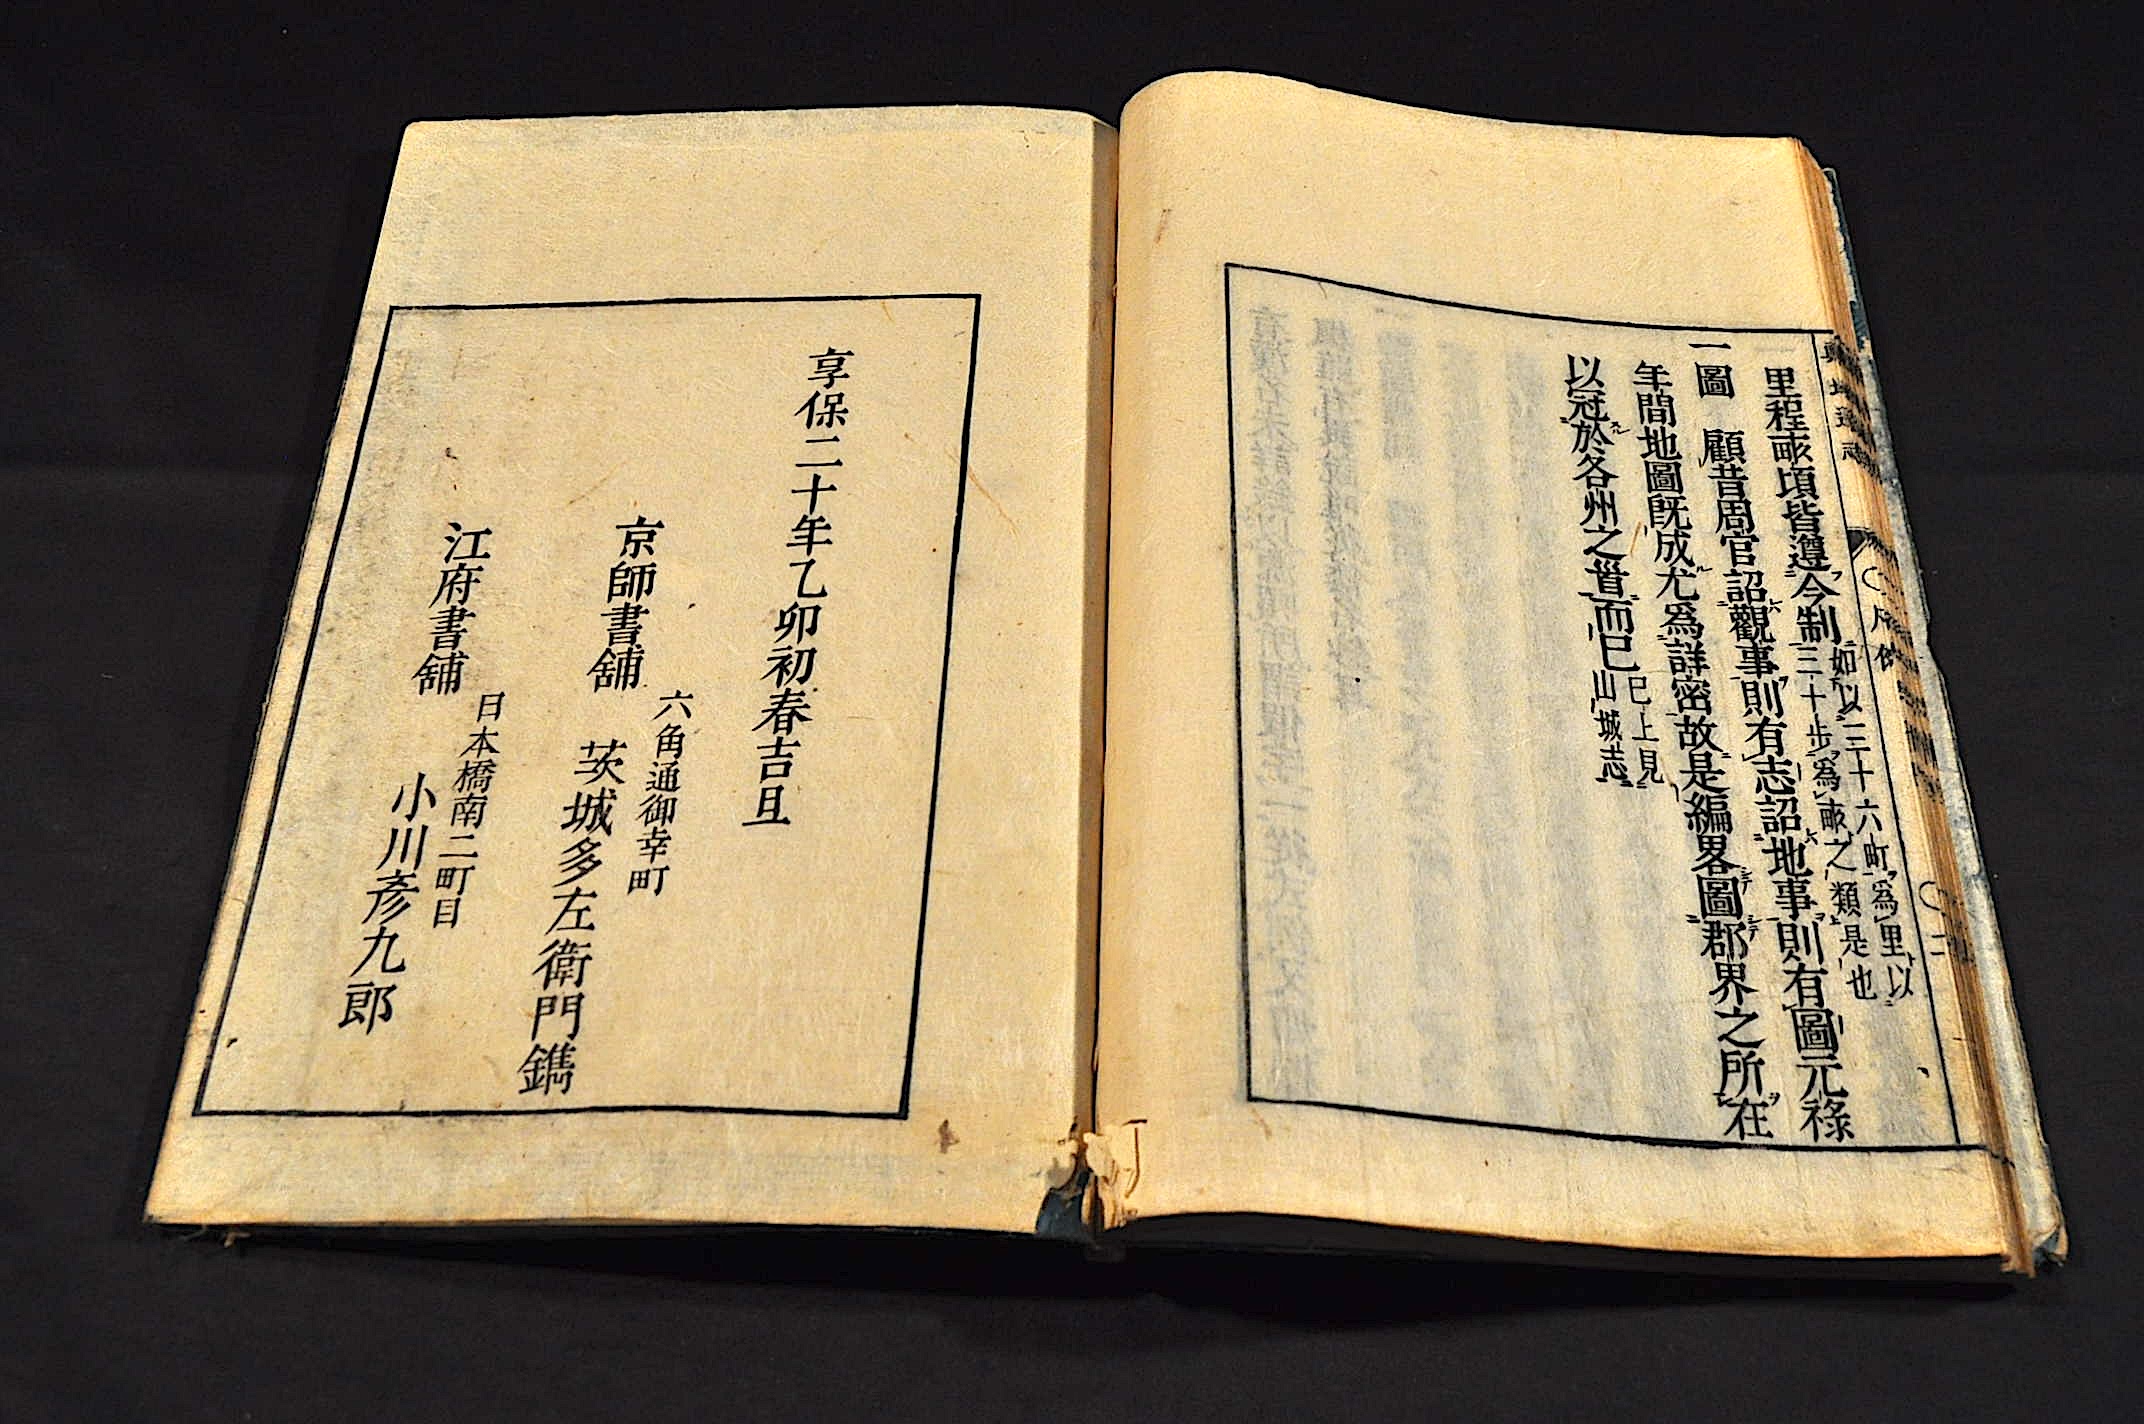 一里程畝頃皆遵今制如以三十六町為里以三十歩為畝之類是也
一圖 顧昔周官詔觀事則有志詔地事則有圖元祿
年間地圖既成尤為詳密故是編畧圖郡界之所在
以冠於各州之首而已已上見山城志
享保二十年乙卯初春吉旦
六角通御幸町
京師書舖 茨城多左衛門鐫
日本橋南二町目
江府書舖 小川彦九郎